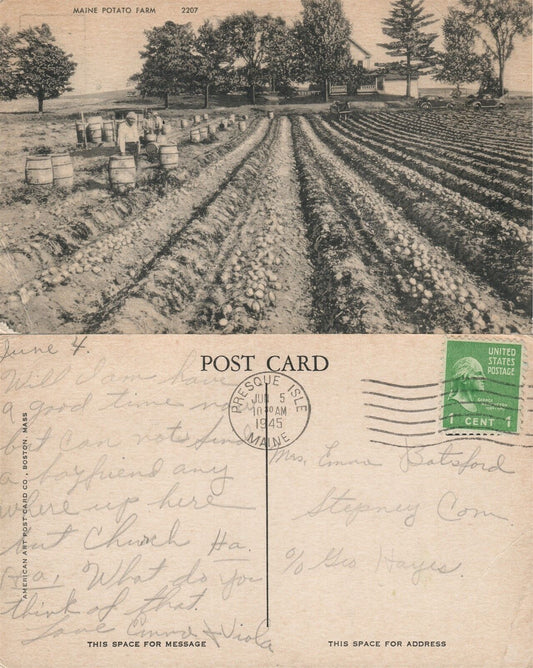 MAINE POTATO FARM 2207
June 4.
POST CARD
Will I am have
a good time now
but can not find
a boyfriend any
where up here
but Church Ha.
Ha, What do you
think of that.
Love Emma & Viola
AMERICAN ART POST CARD CO., BOSTON, MASS
THIS SPACE FOR MESSAGE
PRESQUE ISLE
JUN 5
10 30 AM
1945
MAINE
UNITED
STATES
OF AMERICA
1 CENT 1
Mrs. Emma Botsford
Stepney Conn.
c/o Geo Hayes
THIS SPACE FOR ADDRESS